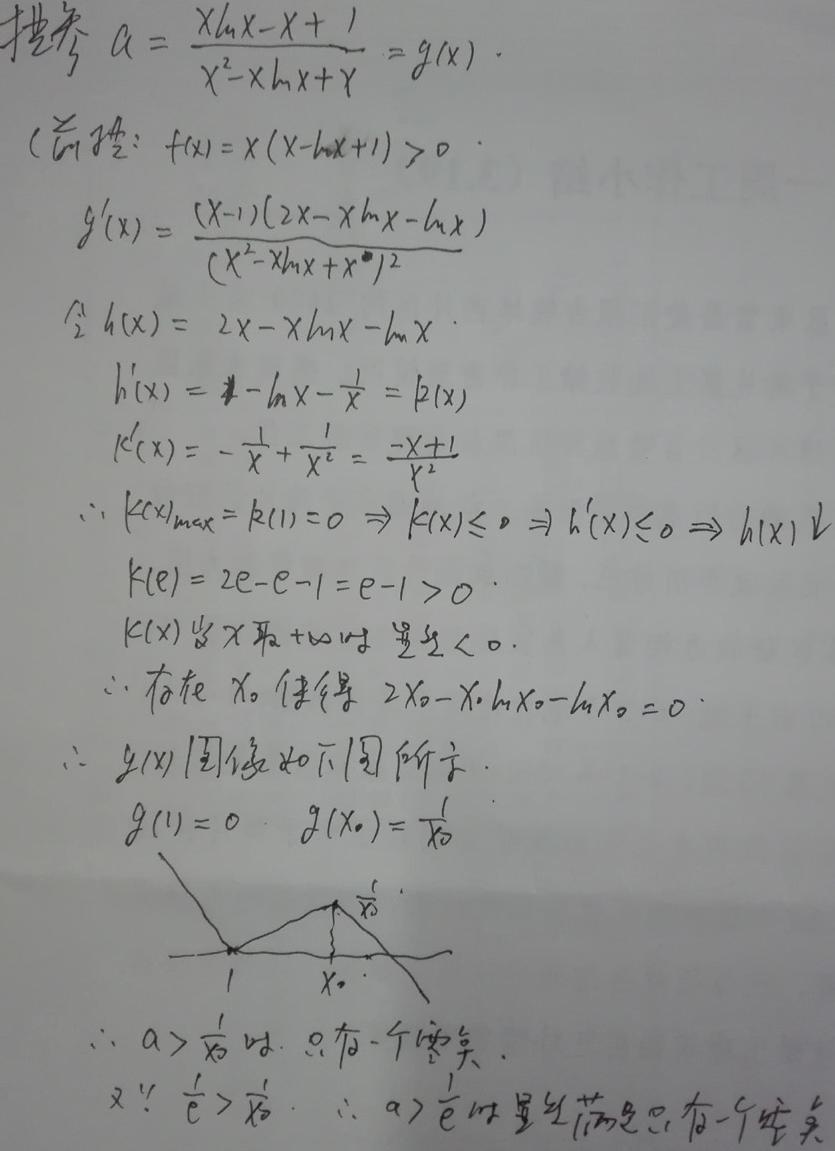 a = (xlnx-x+1)/(x²-xlnx+x) = g(x).
f(x) = x(x-lnx+1) > 0.
g'(x) = (x-1)(2x-xlnx-lnx)/(x²-xlnx+x)²
令 h(x) = 2x-xlnx-lnx.
h'(x) = 1-lnx-1/x = k(x)
k'(x) = -1/x + 1/x² = (-x+1)/x²
∴ k(x)max = k(1) = 0 ⇒ k(x) ≤ 0 ⇒ h'(x) ≤ 0 ⇒ h(x)↓
k(e) = 2e-e-1 = e-1 > 0.
k(x)当x取+∞时显然<0.
∴ 存在 x₀ 使得 2x₀-x₀lnx₀-lnx₀ = 0.
∴ g(x)图像如下图所示.
g(1) = 0 g(x₀) = 1/x₀
1/x₀
1 x₀
∴ a > 1/x₀ 时.只有一个零点.
又∵ 1/e > 1/x₀. ∴ a > 1/e 时显然满足只有一个零点